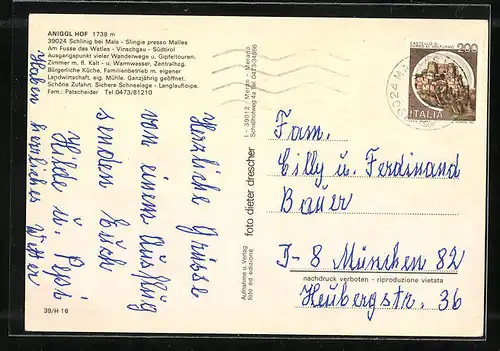 ANIGGL HOF 1738 m
39024 Schlinig bei Mals - Slingia presso Malles
Am Fusse des Watles - Vinschgau - Südtirol
Ausgangspunkt vieler Wanderwege u. Gipfeltouren.
Zimmer m. fl. Kalt - u. Warmwasser, Zentralhzg.
Bürgerliche Küche, Familienbetrieb m. eigener
Landwirtschaft, eig. Mühle. Ganzjährig geöffnet.
Schöne Zufahrt. Sichere Schneelage - Langlaufloipe.
Fam.: Patscheider Tel 0473/81210
Herzliche Grüsse
von einem Ausflug
senden Euch
Hilde u. Pepi
Haben herrliches Wetter
39/H 16
Aufnahme u. Verlag
foto ed edizione
foto dieter drescher
I - 39012 / Meran - Merano
200
ITALIA
Fam.
Cilly u. Ferdinand
Bauer
D-8 München 82
nachdruck verboten - riproduzione vietata
Heubergstr. 36